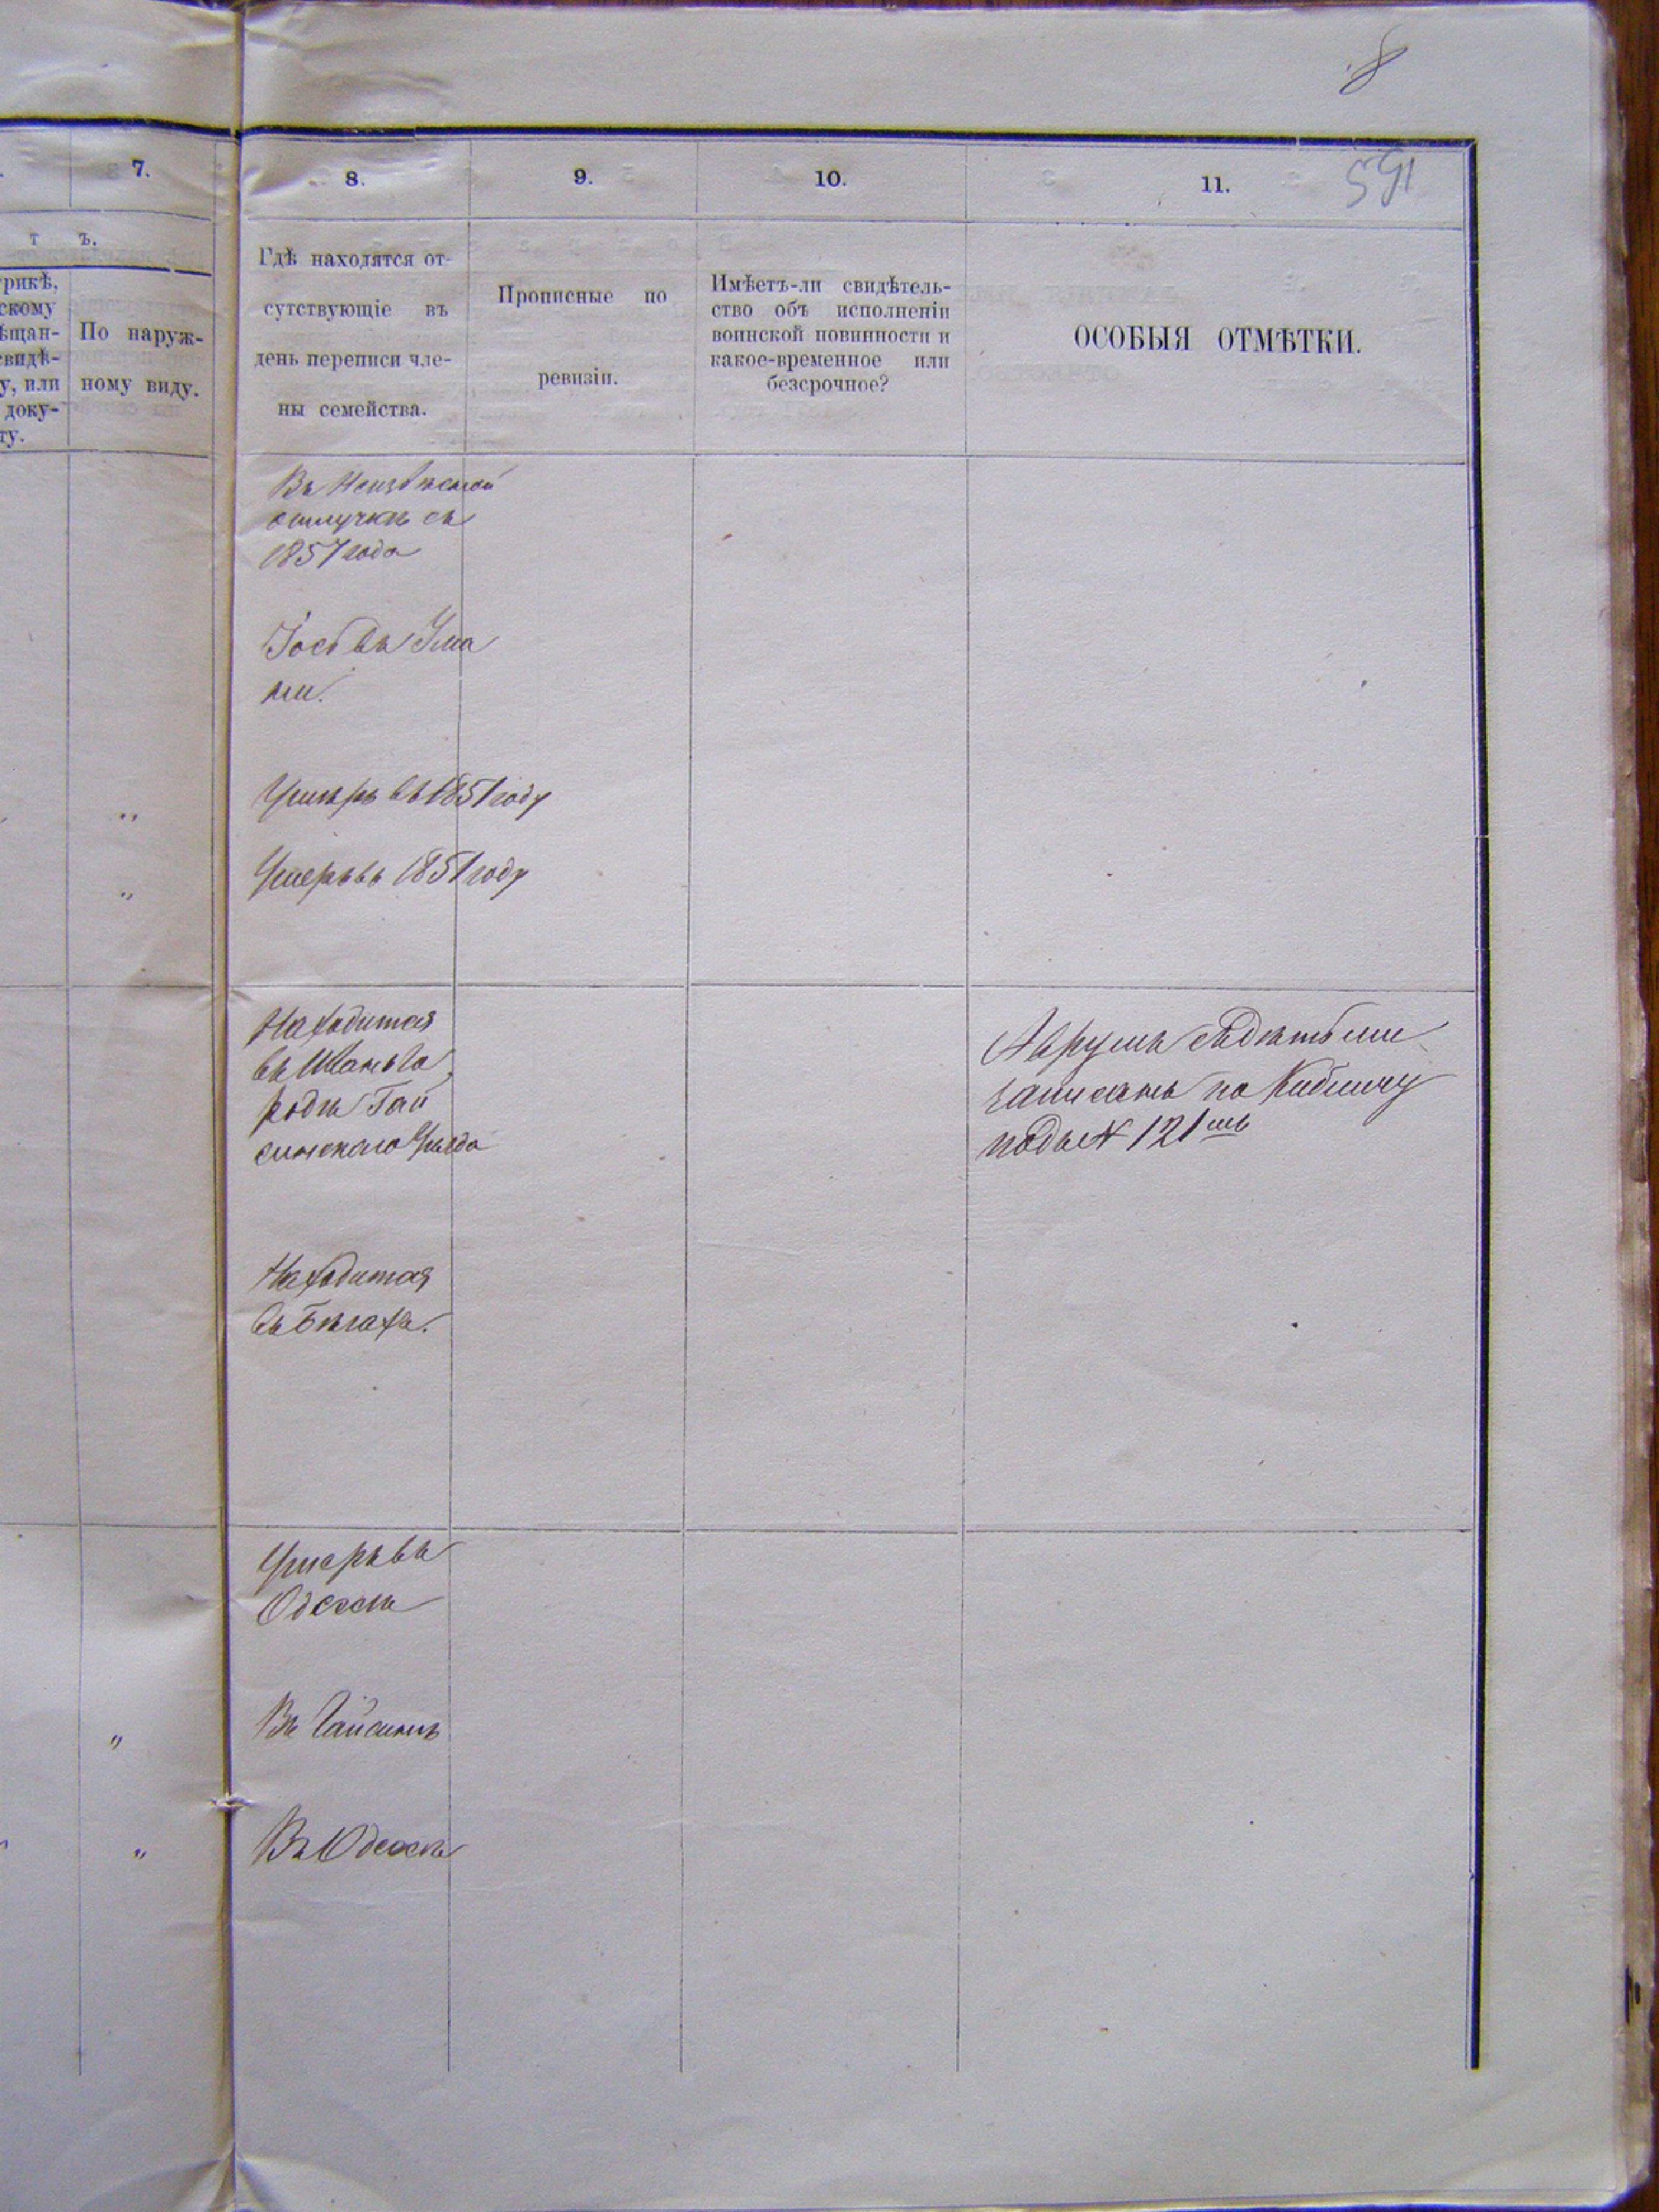 8
591
7.
8.
9.
10.
11.
т ъ.
рикѣ,
скому
ѣщан-
свидѣ-
у, или
доку-
ту.
По наруж-
ному виду.
Гдѣ находятся от-
сутствующіе въ
день переписи чле-
ны семейства.
Прописные по
ревизіи.
Имѣетъ-ли свидѣтель-
ство объ исполненіи
воинской повинности и
какое-временное или
безсрочное?
ОСОБЫЯ ОТМѢТКИ.
Въ Неизвѣсной
отлучкѣ съ
1857 года
въ Ума
ни.
Умеръ въ 1851 году
Умеръ въ 1851 году
Находится
въ Иваньго
родѣ Гай
синскаго Уѣзда
Аврумъ съ дѣтьми
записанъ по
подъ № 121мъ
Находится
въ Бѣгахъ.
Умеръ въ
Одессѣ
Въ Гайсинѣ
Въ Одессѣ